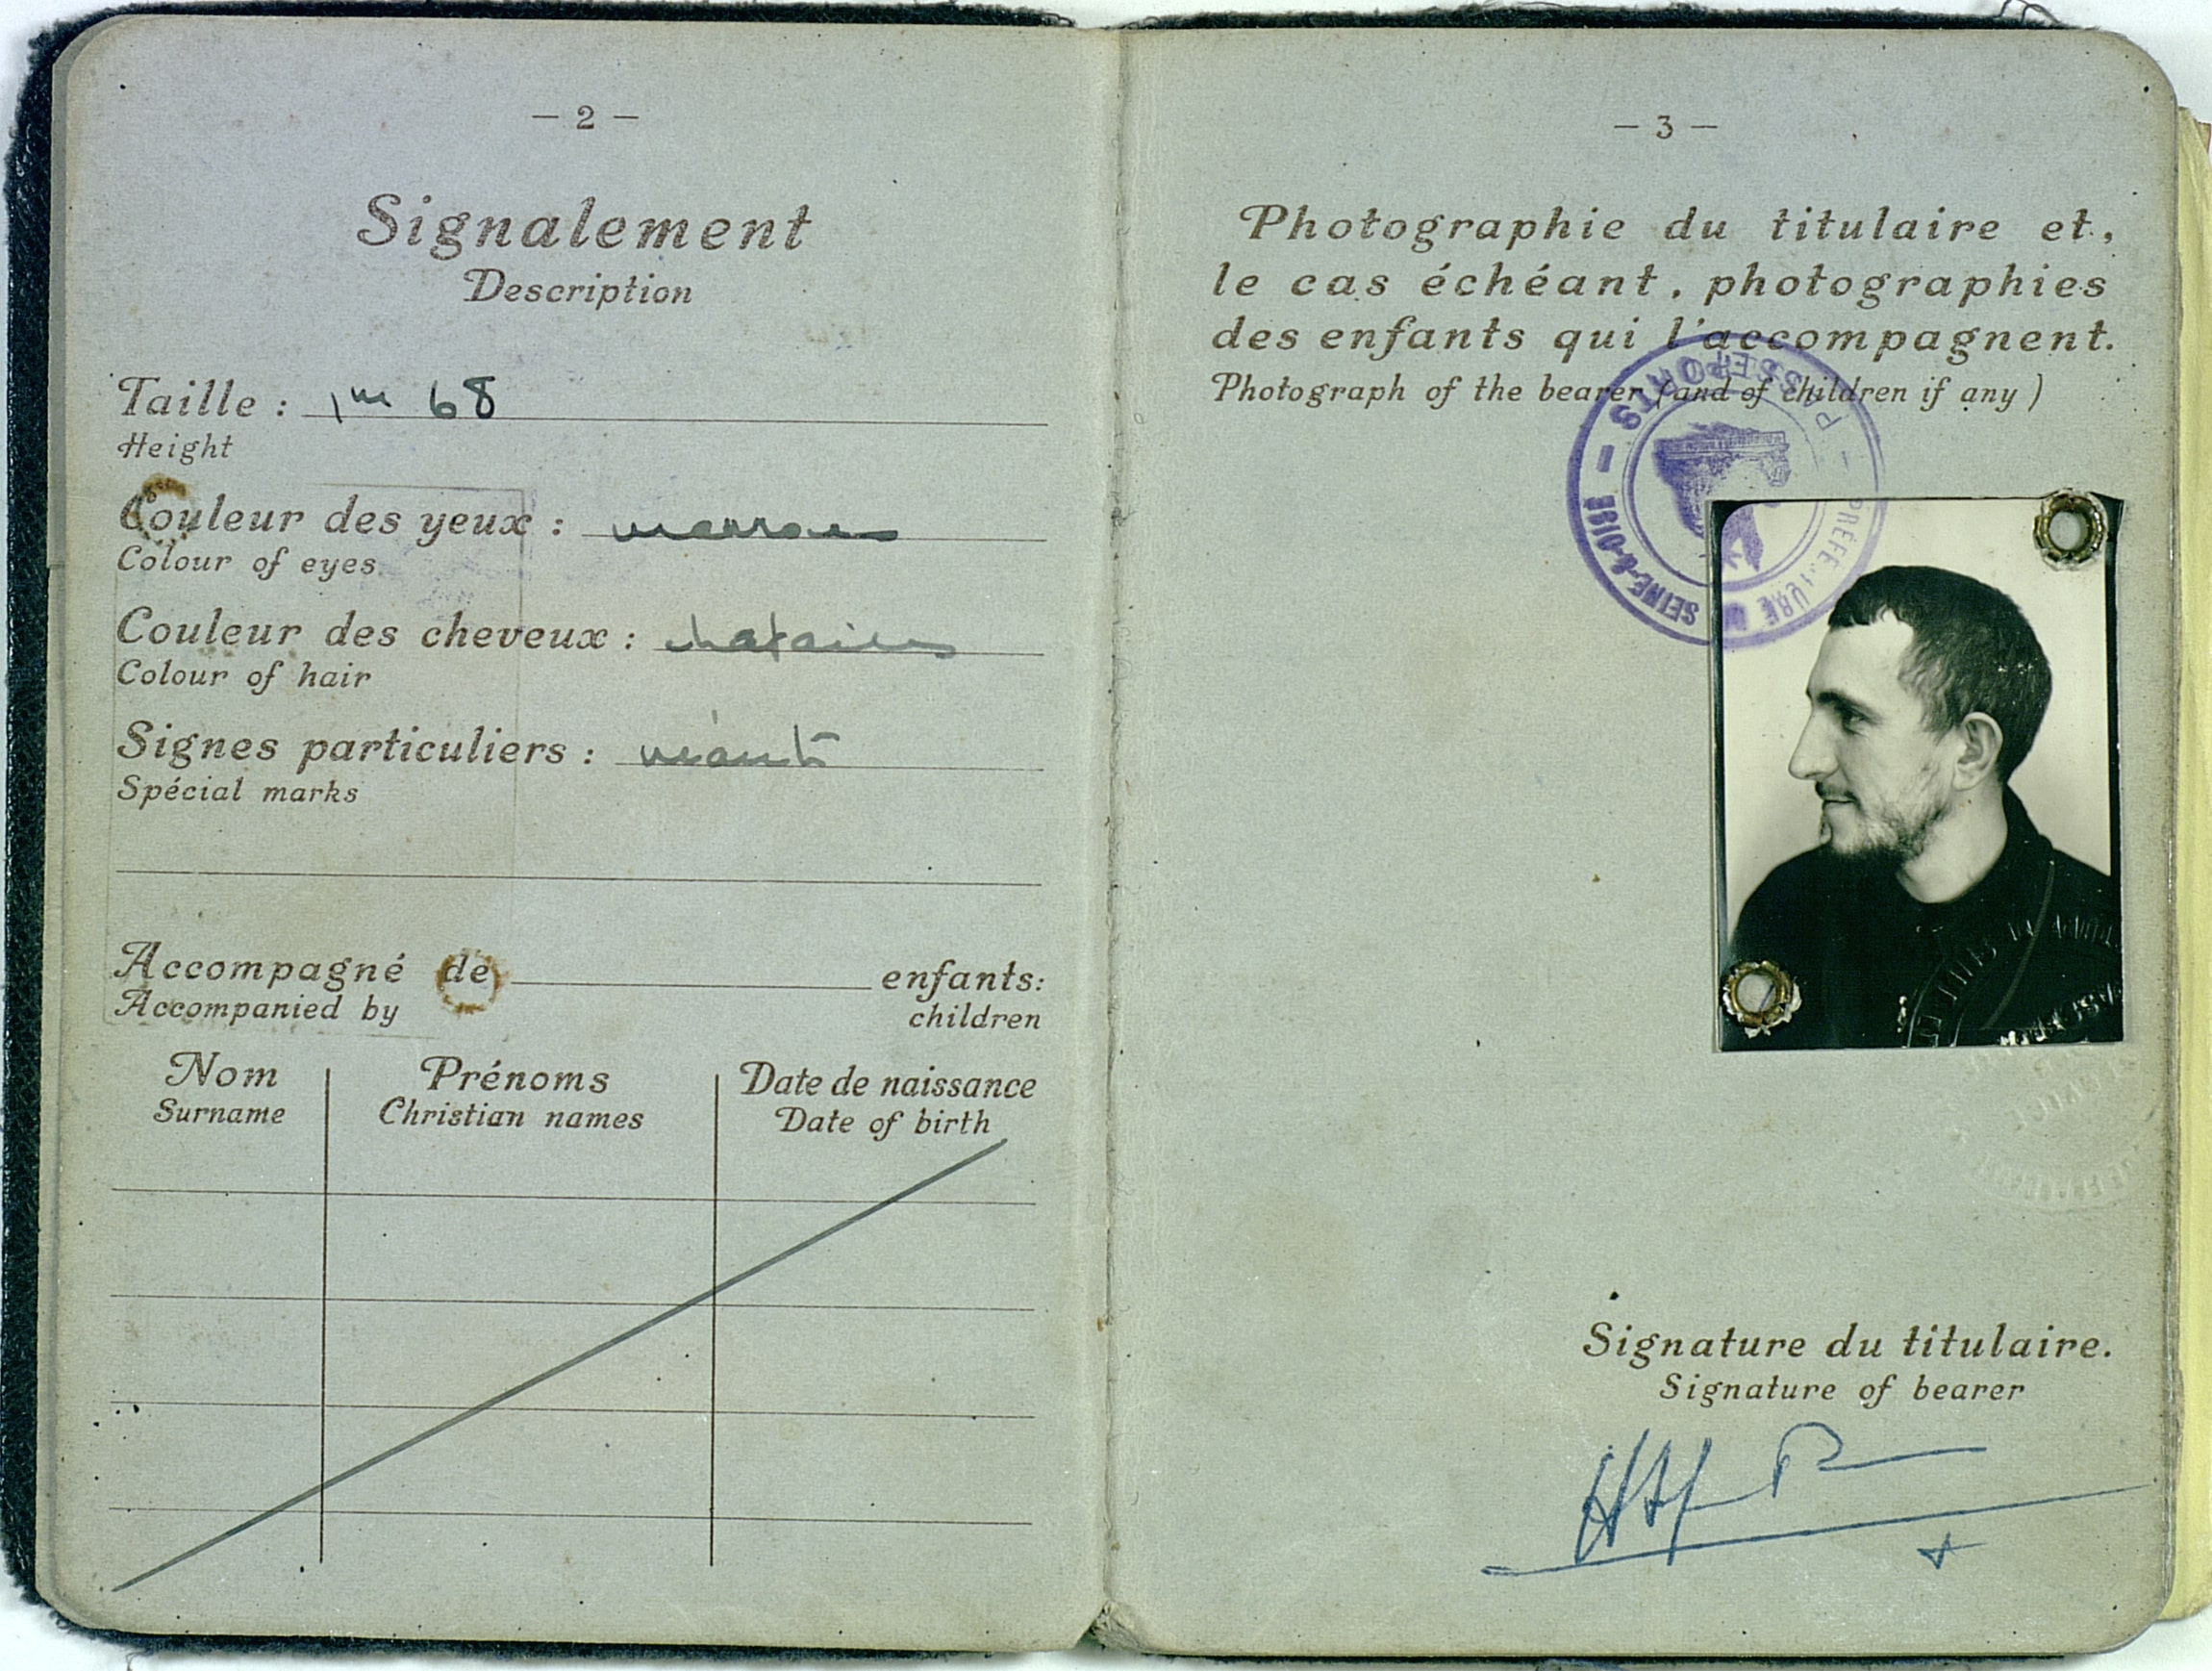 — 2 —
Signalement
Description
Taille : 1m 68
Height
Couleur des yeux : marrons
Colour of eyes
Couleur des cheveux : chatains
Colour of hair
Signes particuliers : néant
Spécial marks
Accompagné de enfants:
Accompanied by children
Nom Prénoms Date de naissance
Surname Christian names Date of birth
— 3 —
Photographie du titulaire et,
le cas échéant, photographies
des enfants qui l'accompagnent.
Photograph of the bearer (and of children if any)
PASSEPORTS
PRÉFECTURE
SEINE-&-OISE
Signature du titulaire.
Signature of bearer